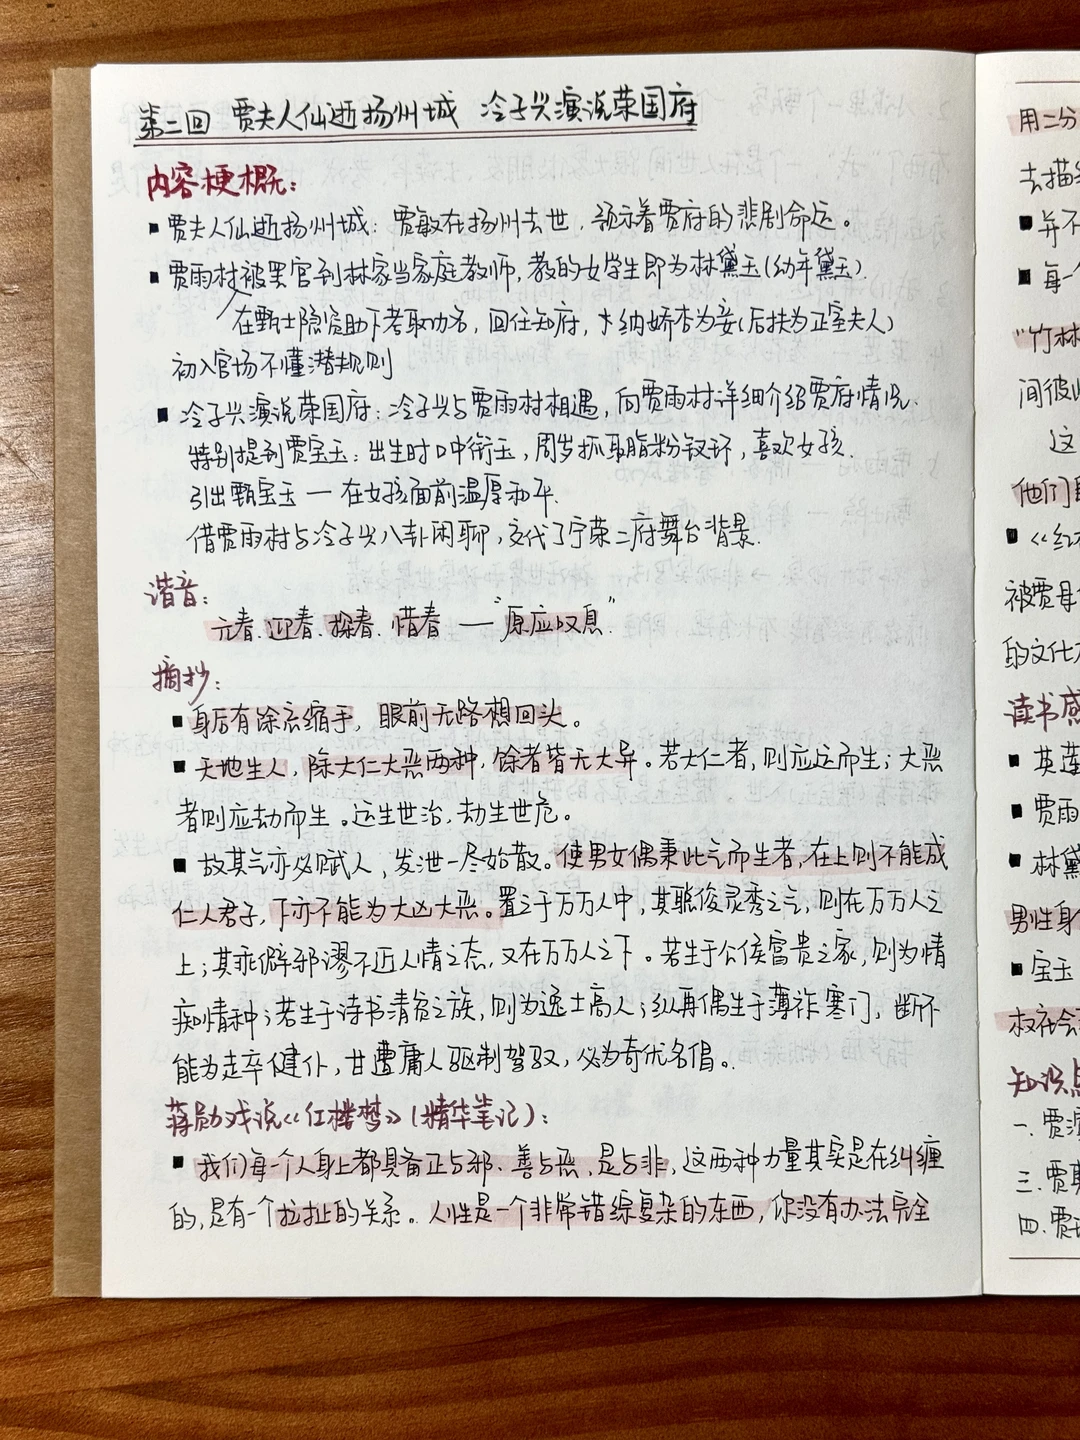 第二回 贾夫人仙逝扬州城 冷子兴演说荣国府
内容梗概：
▪ 贾夫人仙逝扬州城：贾敏在扬州去世，预示着贾府的悲剧命运。
▪ 贾雨村被罢官到林家当家庭教师，教的女学生即为林黛玉(幼年黛玉).
在甄士隐资助下考取功名，回任知府，纳娇杏为妾(后扶为正室夫人)
初入官场不懂潜规则
▪ 冷子兴演说荣国府：冷子兴与贾雨村相遇，向贾雨村详细介绍贾府情况.
特别提到贾宝玉：出生时口中衔玉，周岁抓取脂粉钗环，喜欢女孩.
引出甄宝玉 — 在女孩面前温厚和平.
借贾雨村与冷子兴八卦闲聊，交代了宁荣二府舞台背景.
谐音：
元春、迎春、探春、惜春 —— “原应叹息”
摘抄：
▪ 身后有馀忘缩手，眼前无路想回头。
▪ 天地生人，除大仁大恶两种，馀者皆无大异。若大仁者，则应运而生；大恶
者则应劫而生。运生世治，劫生世危。
▪ 故其气亦必赋人，发泄一尽始散。使男女偶秉此气而生者，在上则不能成
仁人君子，下亦不能为大凶大恶。置之于万万人中，其聪俊灵秀之气，则在万万人之
上；其乖僻邪谬不近人情之态，又在万万人之下。若生于公侯富贵之家，则为情
痴情种；若生于诗书清贫之族，则为逸士高人；纵再偶生于薄祚寒门，断不
能为走卒健仆，甘遭庸人驱制驾驭，必为奇优名倡。
蒋勋戏说《红楼梦》(精华笔记)：
▪ 我们每一个人身上都具备正与邪、善与恶，是与非，这两种力量其实是在纠缠
的，是有一个拉扯的关系。人性是一个非常错综复杂的东西，你没有办法完全
用二分
去描
▪ 并不
▪ 每一
“竹林
间彼
这
他们
▪ 《红
被贾母
的文化
读书感
▪ 英莲
▪ 贾雨
▪ 林黛
男性身
▪ 宝玉
权在
知识点
一. 贾
三. 贾
四. 贾